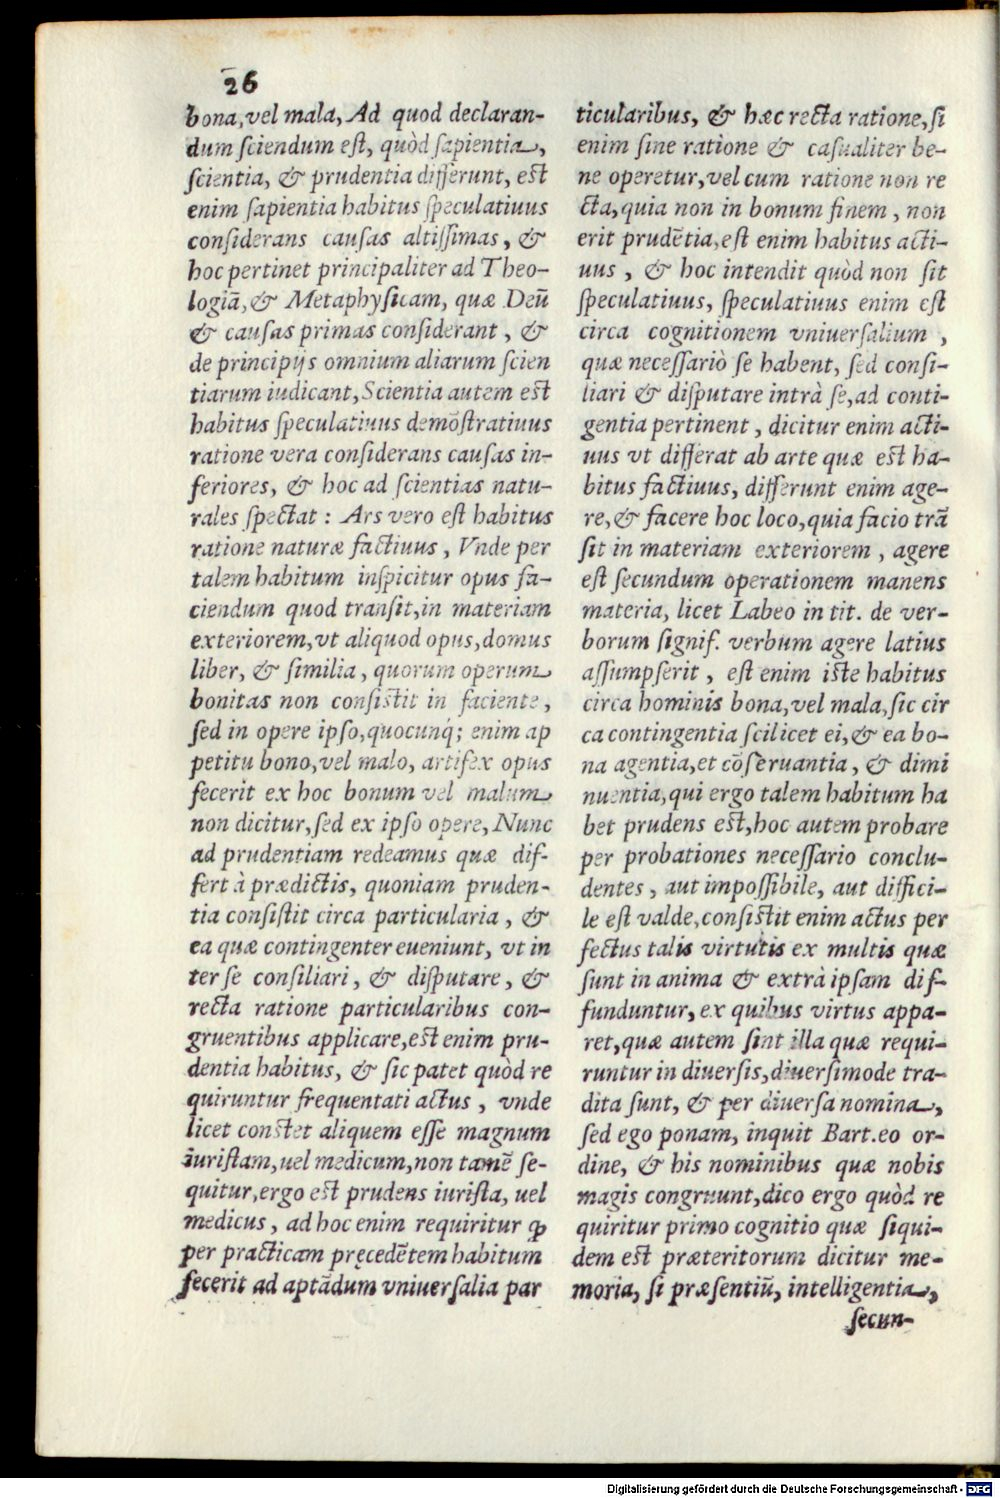 26
bona, vel mala, Ad quod declaran-
dum sciendum est, quòd sapientia,
scientia, & prudentia differunt, est
enim sapientia habitus speculatiuus
considerans causas altissimas, &
hoc pertinet principaliter ad Theo-
logiā, & Metaphysicam, quæ Deū
& causas primas considerant, &
de principijs omnium aliarum scien
tiarum iudicant, Scientia autem est
habitus speculatiuus demōstratiuus
ratione vera considerans causas in-
feriores, & hoc ad scientias natu-
rales spectat : Ars vero est habitus
ratione naturæ factiuus, Vnde per
talem habitum inspicitur opus fa-
ciendum quod transit, in materiam
exteriorem, vt aliquod opus, domus
liber, & similia, quorum operum
bonitas non consistit in faciente,
sed in opere ipso, quocunq́; enim ap
petitu bono, vel malo, artifex opus
fecerit ex hoc bonum vel malum
non dicitur, sed ex ipso opere, Nunc
ad prudentiam redeamus quæ dif-
fert à prædictis, quoniam pruden-
tia consistit circa particularia, &
ea quæ contingenter eueniunt, vt in
ter se consiliari, & disputare, &
recta ratione particularibus con-
gruentibus applicare, est enim pru-
dentia habitus, & sic patet quòd re
quiruntur frequentati actus, vnde
licet constet aliquem esse magnum
iuristam, uel medicum, non tamē se-
quitur, ergo est prudens iurista, uel
medicus, ad hoc enim requiritur ꝙ
per practicam pręcedētem habitum
fecerit ad aptādum vniuersalia par
ticularibus, & hæc recta ratione, si
enim sine ratione & casualiter be-
ne operetur, vel cum ratione non re
cta, quia non in bonum finem, non
erit prudētia, est enim habitus acti-
uus, & hoc intendit quòd non sit
speculatiuus, speculatiuus enim est
circa cognitionem vniuersalium,
quæ necessariò se habent, sed consi-
liari & disputare intrà se, ad conti-
gentia pertinent, dicitur enim acti-
uus vt differat ab arte quæ est ha-
bitus factiuus, differunt enim age-
re, & facere hoc loco, quia facio trā
sit in materiam exteriorem, agere
est secundum operationem manens
materia, licet Labeo in tit. de ver-
borum signif. verbum agere latius
assumpserit, est enim iste habitus
circa hominis bona, vel mala, sic cir
ca contingentia scilicet ei, & ea bo-
na agentia, et cōseruantia, & dimi
nuentia, qui ergo talem habitum ha
bet prudens est, hoc autem probare
per probationes necessario conclu-
dentes, aut impossibile, aut diffici-
le est valde, consistit enim actus per
fectus talis virtutis ex multis quæ
sunt in anima & extrà ipsam dif-
funduntur, ex quibus virtus appa-
ret, quæ autem sint illa quæ requi-
runtur in diuersis, diuersimode tra-
dita sunt, & per diuersa nomina,
sed ego ponam, inquit Bart. eo or-
dine, & his nominibus quæ nobis
magis congruunt, dico ergo quòd re
quiritur primo cognitio quæ siqui-
dem est præteritorum dicitur me-
moria, si præsentiū, intelligentia,
secun-
Digitalisierung gefördert durch die Deutsche Forschungsgemeinschaft - DFG